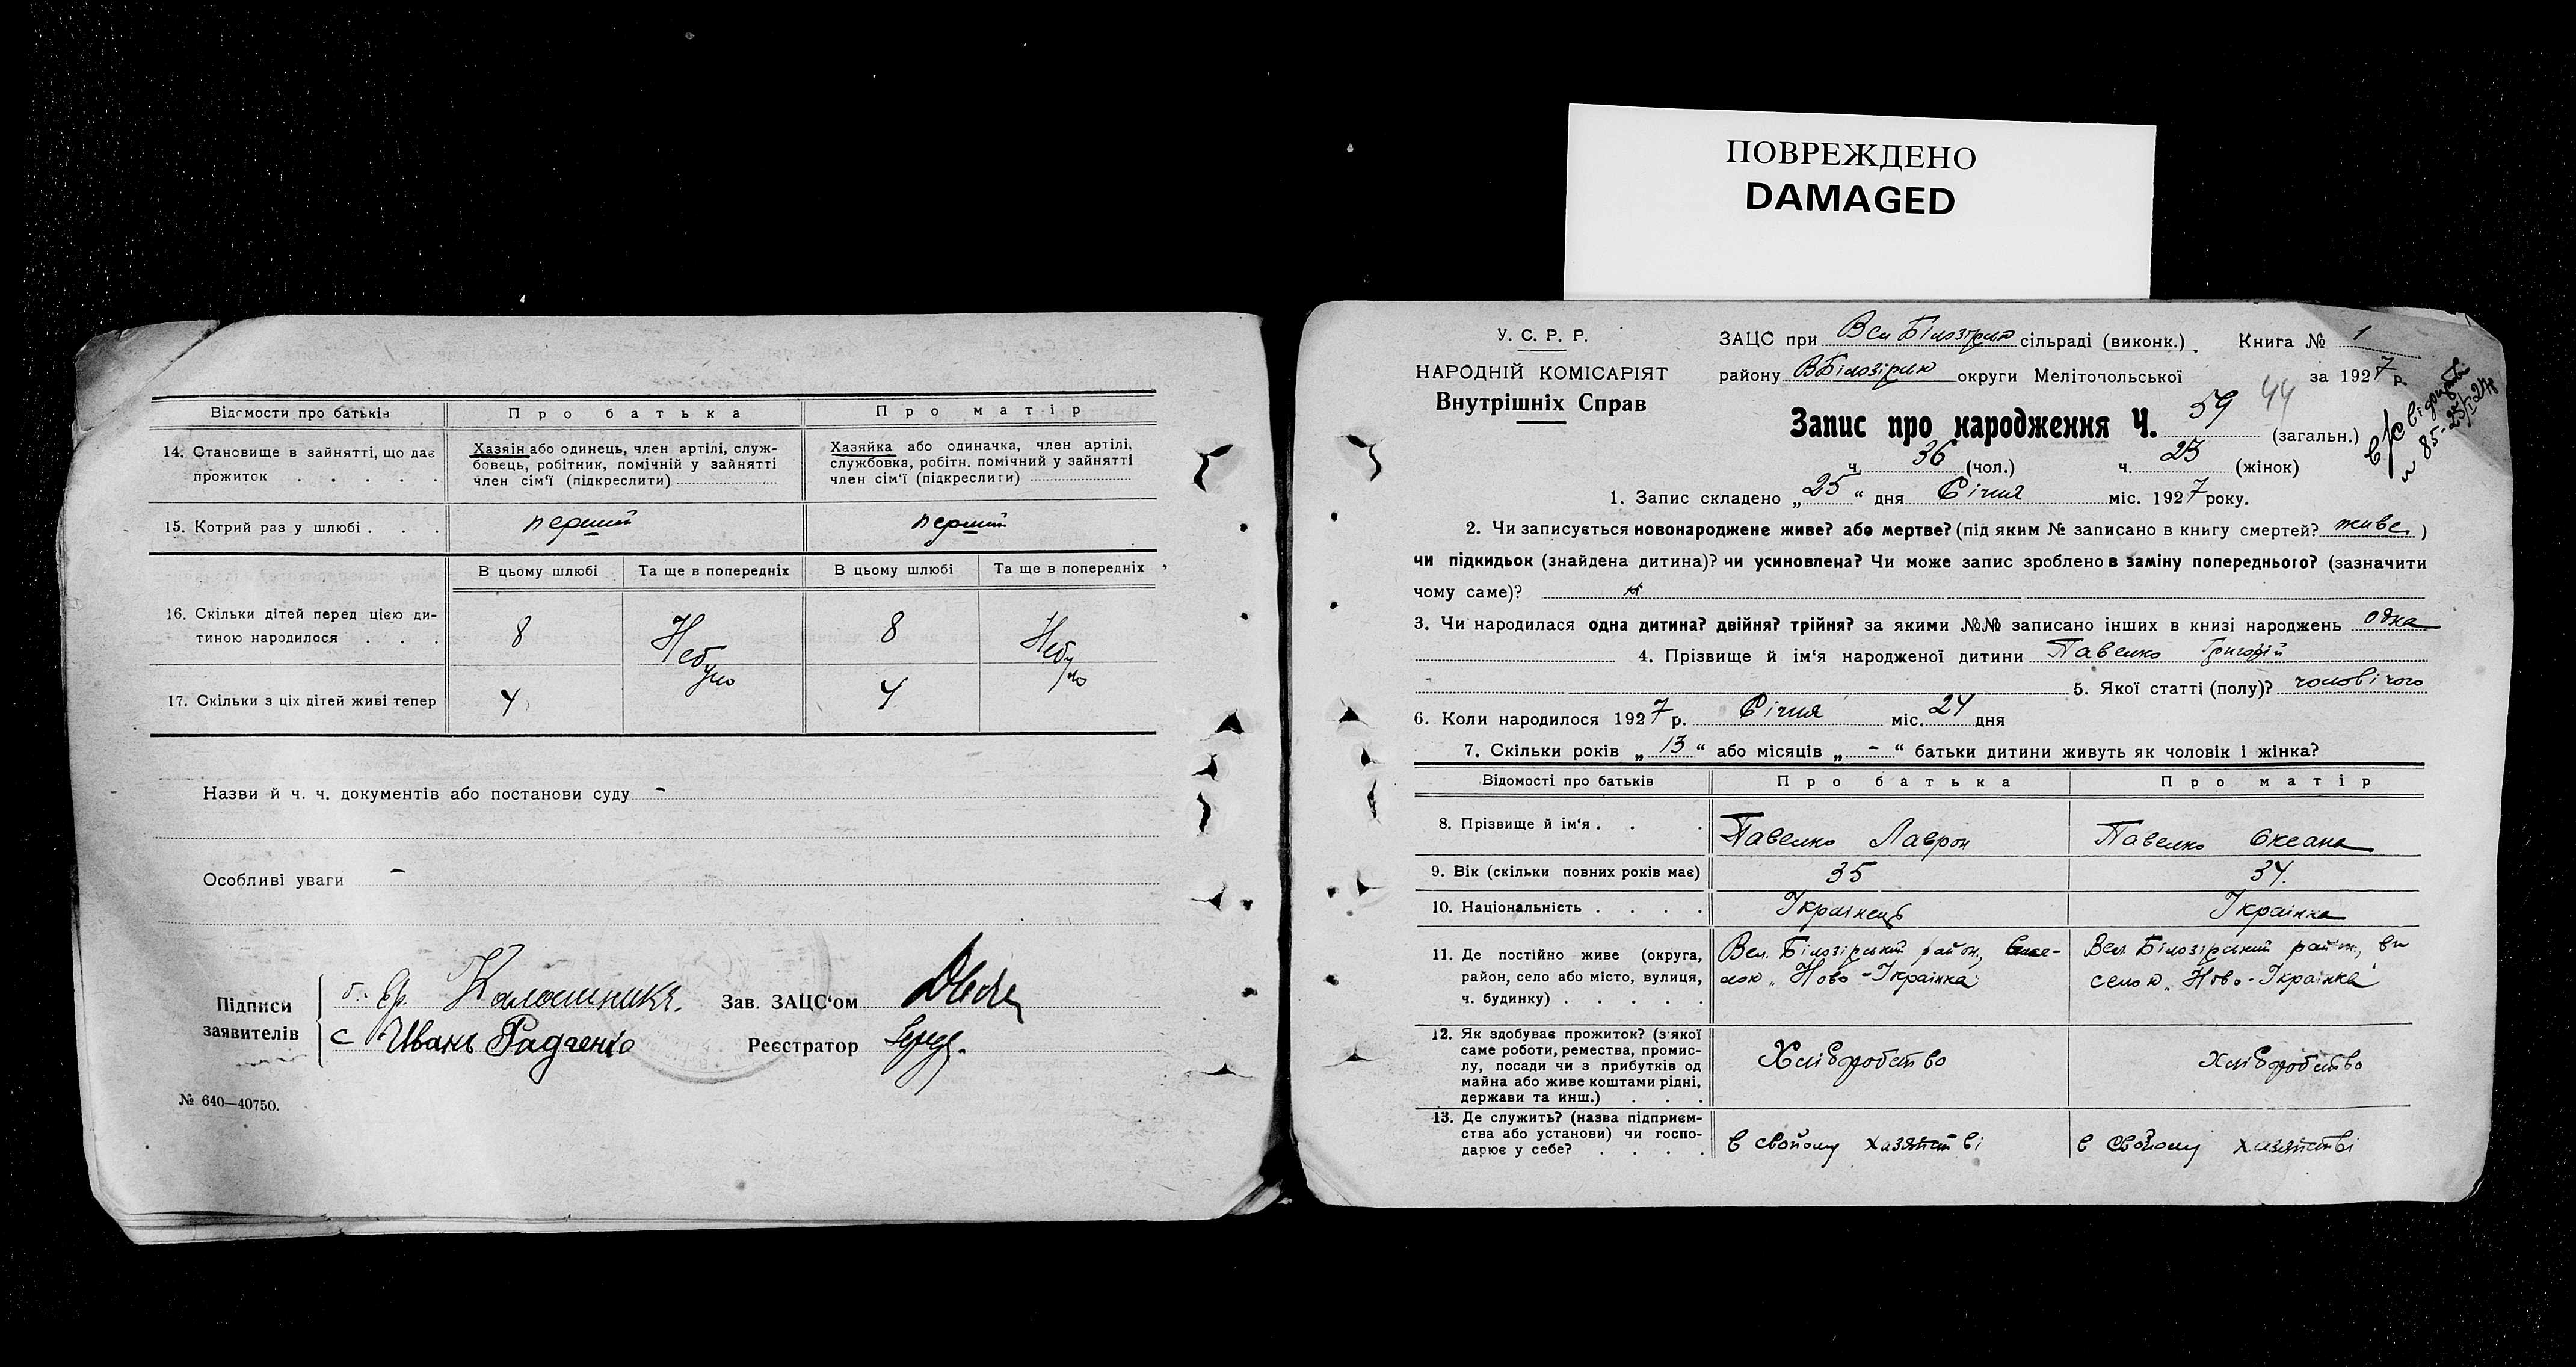 ПОВРЕЖДЕНО
DAMAGED
Відомости про батьків
Про батька
Про матір
14. Становище в зайнятті, що дає прожиток . . . . .
Хазяін або одинець, член артілі, служ-
бовець, робітник, помічній у зайнятті
член сім'ї (підкреслити)
Хазяйка або одиначка, член артілі,
службовка, робітн. помічний у зайнятті
член сім'ї (підкреслити)
15. Котрий раз у шлюбі . . .
перший
перший
В цьому шлюбі
Та ще в попередніх
В цьому шлюбі
Та ще в попередніх
16. Скільки дітей перед цією ди-
тиною народилося . . .
8
Небуло
8
Небуло
17. Скільки з ціх дітей живі тепер
4
4
Назви й ч. ч. документів або постанови суду -
Особливі уваги -
Підписи
заявителів
Зав. ЗАЦС'ом
с Иванъ Радченко
Реєстратор
№ 640—40750.
У. С. Р. Р.
НАРОДНІЙ КОМІСАРІЯТ
Внутрішніх Справ
ЗАЦС при Вел Білозірск сільраді (виконк.) Книга № 1
району ВБілозірск округи Мелітопольської за 1927 р.
44
Запис про народження Ч. 59 (загальн.)
ч. 36 (чол.) ч. 23 (жінок)
1. Запис складено „25“ дня Січня міс. 1927 року.
2. Чи записується новонароджене живе? або мертве? (під яким № записано в книгу смертей? живе )
чи підкидьок (знайдена дитина)? чи усиновлена? Чи може запис зроблено в заміну попереднього? (зазначити
чому саме)?
3. Чи народилася одна дитина? двійня? трійня? за якими №№ записано інших в книзі народжень одна
4. Прізвище й ім'я народженої дитини Павелко Григорій
5. Якої статті (полу)? чоловічого
6. Коли народилося 1927 р. Січня міс. 24 дня
7. Скільки років „13“ або місяців „-“ батьки дитини живуть як чоловік і жінка?
Відомості про батьків
Про батька
Про матір
8. Прізвище й ім'я . . .
Павелко Лаврон
Павелко Оксана
9. Вік (скільки повних років має)
35
34.
10. Національність . . . .
Українець
Українка
11. Де постійно живе (округа,
район, село або місто, вулиця,
ч. будинку) . . . . .
Вел. Білозірський район,
„Ново-Українка“
Вел. Білозірський район, ви
селок „Ново-Українка“
12. Як здобуває прожиток? (з якої
саме роботи, ремества, промис-
лу, посади чи з прибутків од
майна або живе коштами рідні,
держави та инш.) . . .
Хліборобство
Хліборобство
13. Де служить? (назва підприєм-
ства або установи) чи госпо-
дарює у себе? . . . .
в свойому хазяйстві
в свойому хазяйстві